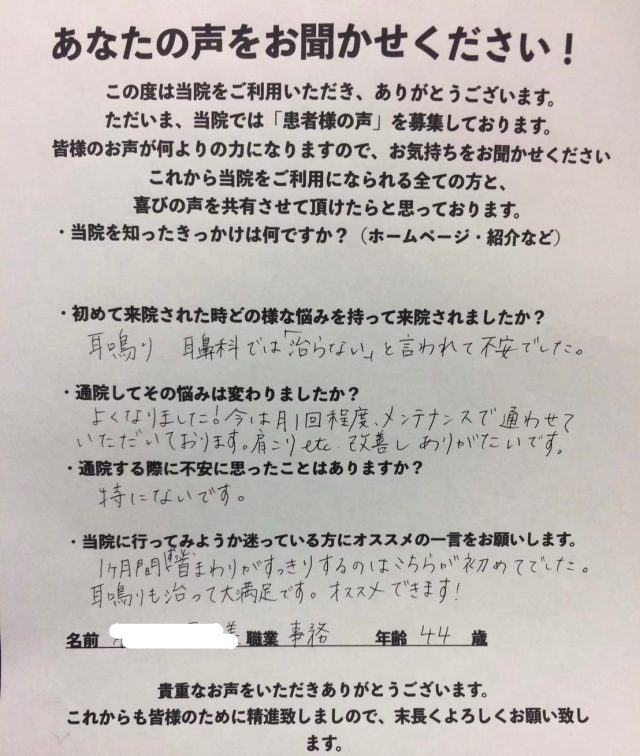 あなたの声をお聞かせください！
この度は当院をご利用いただき、ありがとうございます。
ただいま、当院では「患者様の声」を募集しております。
皆様のお声が何よりの力になりますので、お気持ちをお聞かせください
これから当院をご利用になられる全ての方と、
喜びの声を共有させて頂けたらと思っております。
・当院を知ったきっかけは何ですか？（ホームページ・紹介など）
・初めて来院された時どの様な悩みを持って来院されましたか？
耳鳴り 耳鼻科では「治らない」と言われて不安でした。
・通院してその悩みは変わりましたか？
よくなりました！今は月1回程度、メンテナンスで通わせて
いただいております。肩こりetc. 改善しありがたいです。
・通院する際に不安に思ったことはありますか？
特にないです。
・当院に行ってみようか迷っている方にオススメの一言をお願いします。
1ヶ月間ずっと首まわりがすっきりするのはこちらが初めてでした。
耳鳴りも治って大満足です。オススメできます！
名前 美 職業 事務 年齢 44 歳
貴重なお声をいただきありがとうございます。
これからも皆様のために精進致しましので、末長くよろしくお願い致し
ます。